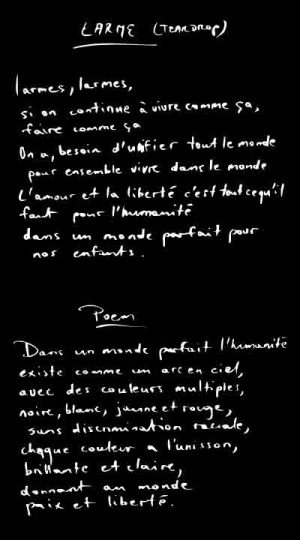 LARME (TEARDROP)
larmes, larmes,
si on continue à vivre comme ça,
faire comme ça
On a, besoin d'unifier tout le monde
pour ensemble vivre dans le monde
L'amour et la liberté c'est tout cequ'il
faut pour l'humanité
dans un monde parfait pour
nos enfants.
Poem
Dans un monde parfait l'humanité
existe comme un arc en ciel,
avec des couleurs multiples,
noire, blanc, jaune et rouge,
sans discrimination raciale,
chaque couleur a l'unisson,
brillante et claire,
donnant au monde
paix et liberté.